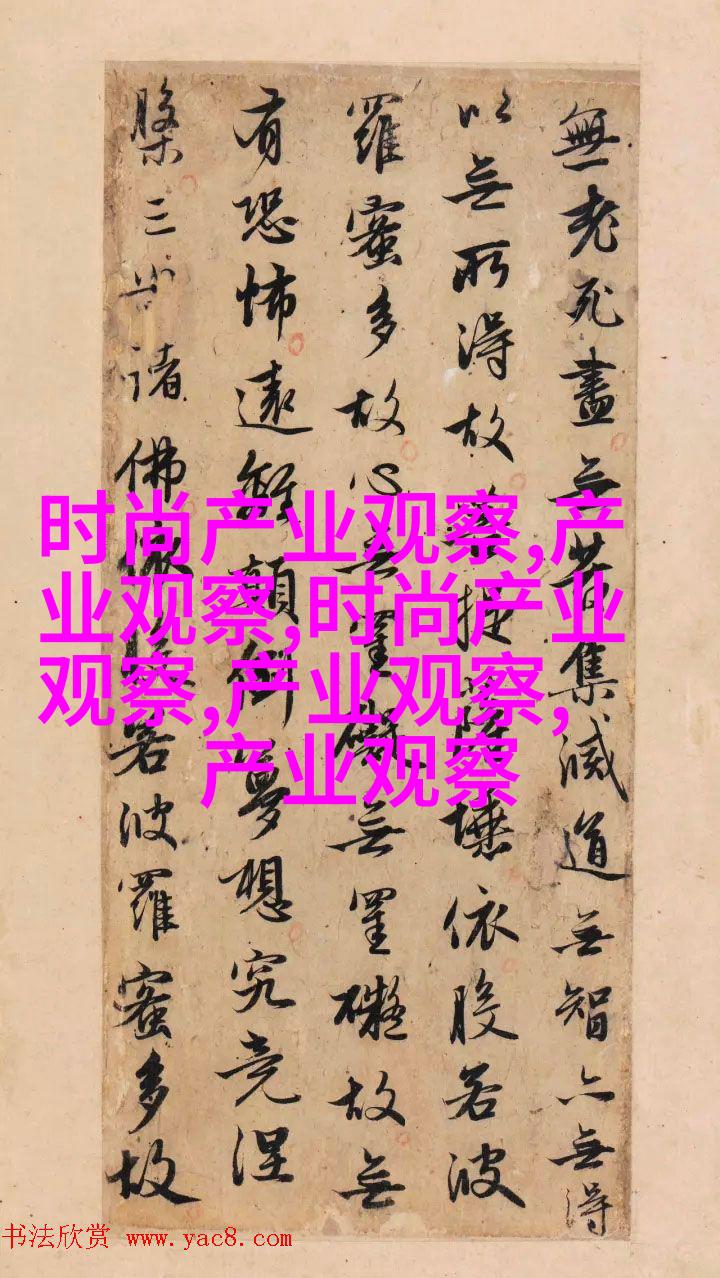 無老死盡无苦集滅道无智亦无得
以无所得故菩提薩埵依般若波
羅蜜多故心无罣礙无罣礙故无
有恐怖遠離顛倒夢想究竟涅
槃三世諸佛依般若波羅蜜多故
时尚产业观察,产
业观察,时尚产业
观察,产业观察,
产业观察
书法欣赏 www.yac8.com